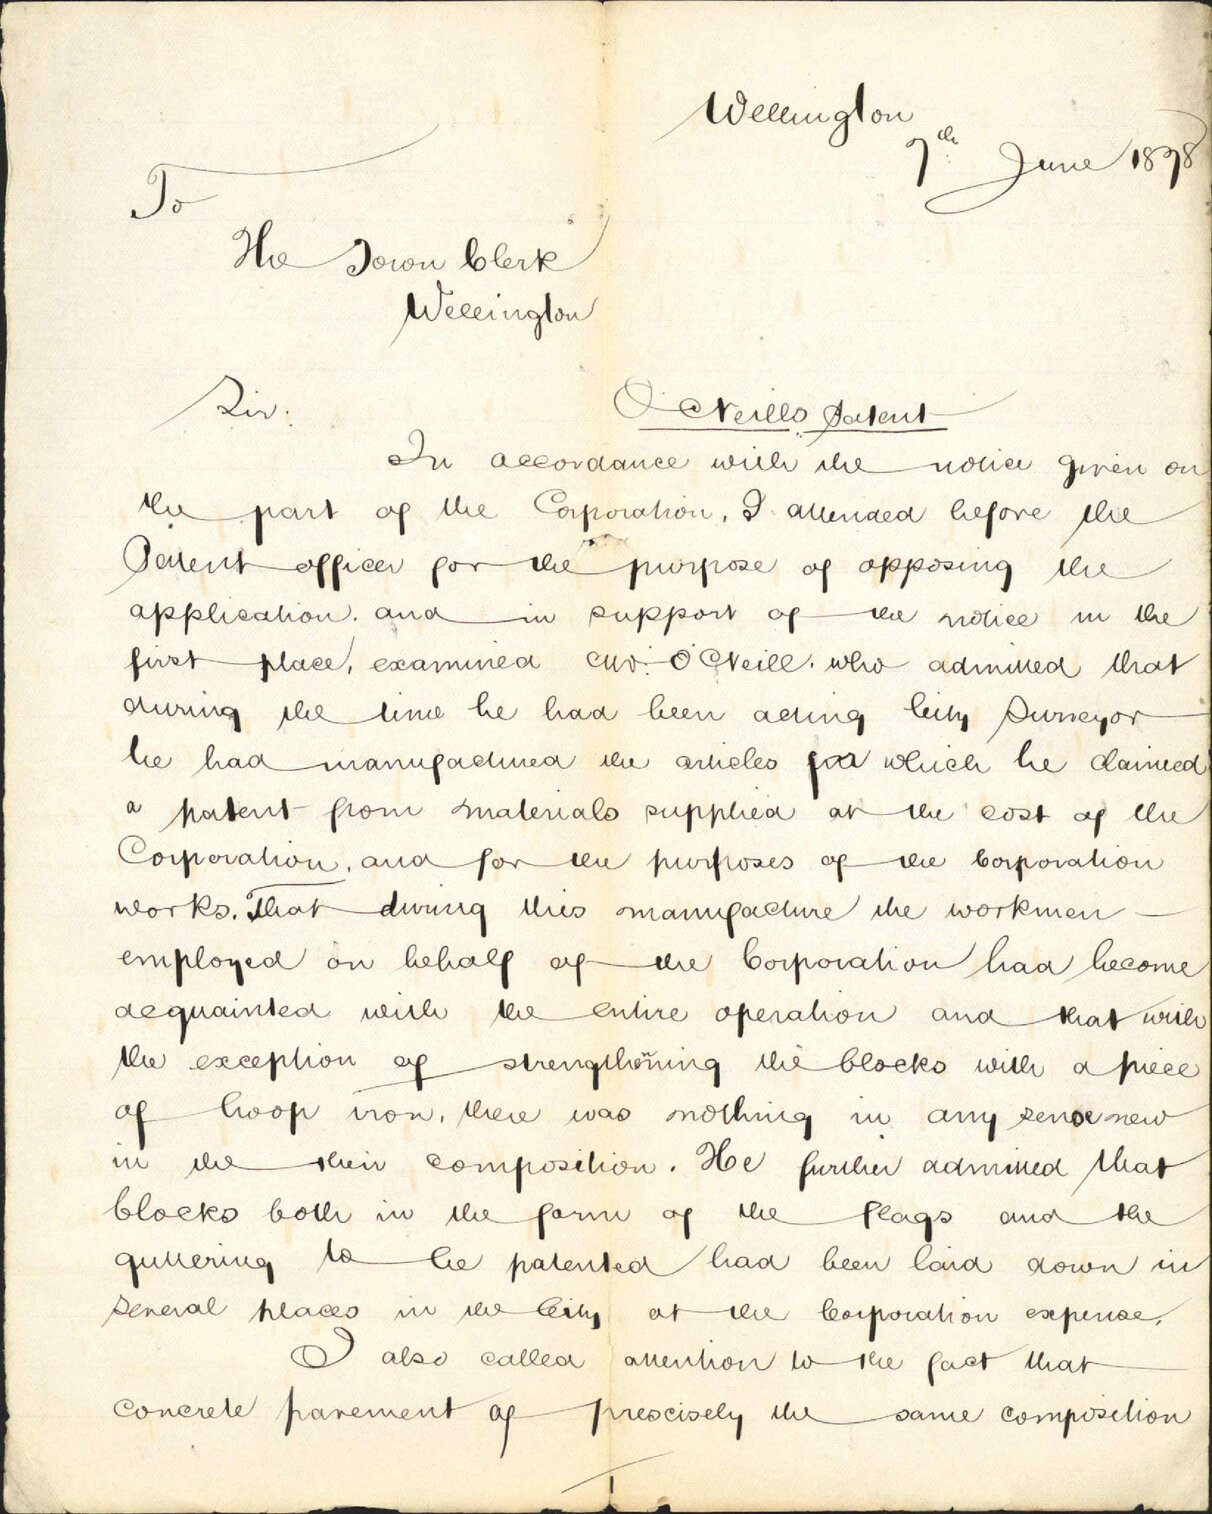 Wellington
7th June 1878
To
The Town Clerk
Wellington
Sir.
O'Neills Patent
In accordance with the notice given on
the part of the Corporation, I attended before the
Patent officer for the purpose of opposing the
application. and in support of the notice in the
first place, examined Mr. O'Neill. who admitted that
during the time he had been acting City Surveyor
he had manufactured the articles for which he claimed
a patent from materials supplied at the cost of the
Corporation, and for the purposes of the Corporation
works. That during this manufacture the workmen
employed on behalf of the Corporation had become
acquainted with the entire operation and that with
the exception of strengthening the blocks with a piece
of hoop iron, there was nothing in any sense new
in the their composition. He further admitted that
blocks both in the form of the flags and the
guttering to be patented had been laid down in
several places in the City at the Corporation expense.
I also called attention to the fact that
concrete pavement of prescisely the same composition